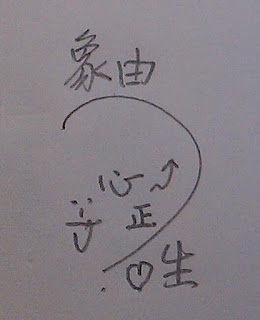 象由
心
正
生